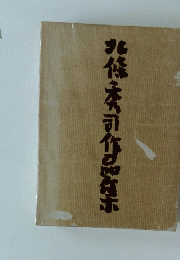 北條秀司作品集